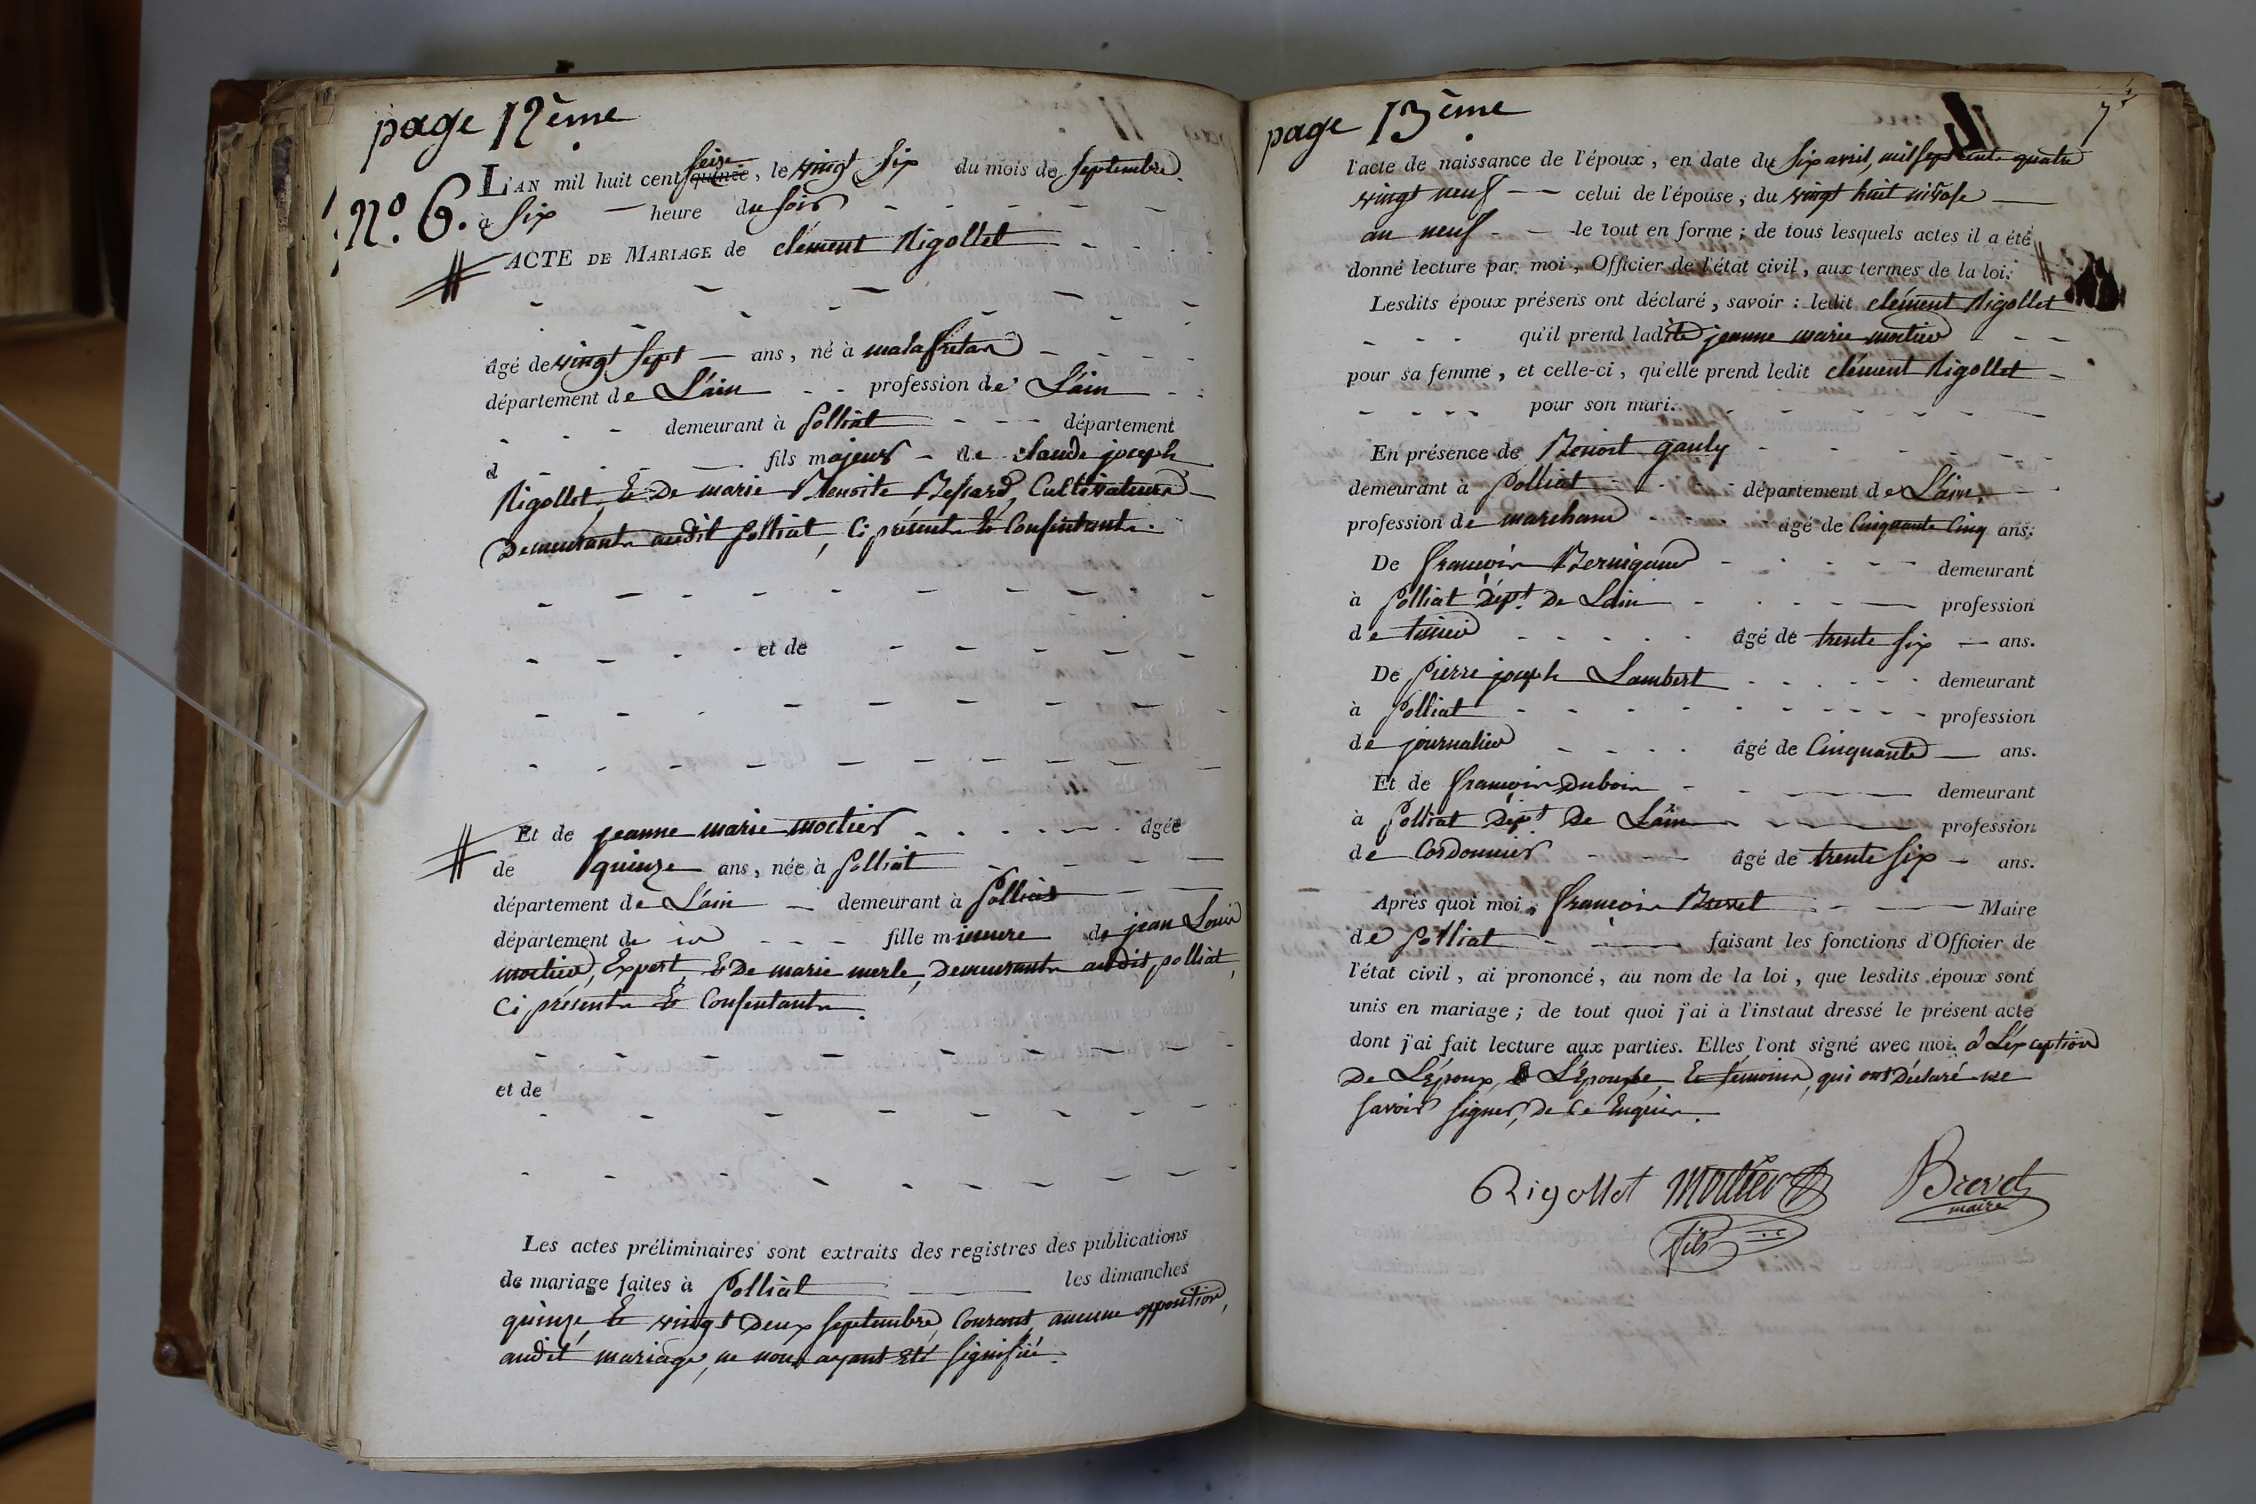 page 12ème
L'AN mil huit cent quinze seize, le vingt six du mois de septembre
N.º 6. à six heure du soir
ACTE DE MARIAGE de clément Rigollet
âgé de vingt sept ans, né à malafretaz
département de L'ain profession de L'ain
demeurant à polliat département
d fils majeur de claude joseph
Rigollet, & De marie Benoite Bessard, Cultivateurs
Demeurants audit polliat, Ci présents & Consentants.
et de
Et de jeanne marie mortier âgée
de quinze ans, née à polliat
département de L'ain demeurant à polliat
département de id fille mineure de jean Louis
mortier, Expert, & De marie merle, Demeurants audit polliat,
Ci présents & Consentants.
et de
Les actes préliminaires sont extraits des registres des publications
de mariage faites à polliat les dimanches
quinze & vingt Deux septembre, Courant, aucune opposition,
audit mariage, ne nous ayant été signifié.
page 13ème
l'acte de naissance de l'époux, en date du six avril, mil sept cent quatre
vingt neuf celui de l'épouse, du vingt huit nivose
an neuf le tout en forme; de tous lesquels actes il a été
donné lecture par moi, Officier de l'état civil, aux termes de la loi.
Lesdits époux présens ont déclaré, savoir: ledit clément Rigollet
qu'il prend ladite jeanne marie mortier
pour sa femme, et celle-ci, qu'elle prend ledit clément Rigollet
pour son mari.
En présence de Benoit gauly
demeurant à polliat département de L'ain.
profession de marchand âgé de Cinquante Cinq ans.
De françois Bernigaud demeurant
à polliat Dépt. De Lain profession
de tissier âgé de trente six ans.
De pierre joseph Lambert demeurant
à polliat profession
de journalier âgé de Cinquante ans.
Et de françois Dubois demeurant
à polliat Dépt De Lain profession
de Cordonnier âgé de trente six ans.
Après quoi moi, françois Brevet Maire
de polliat faisant les fonctions d'Officier de
l'état civil, ai prononcé, au nom de la loi, que lesdits époux sont
unis en mariage; de tout quoi j'ai à l'instaut dressé le présent acte
dont j'ai fait lecture aux parties. Elles l'ont signé avec moi, à L'éxception
De L'Époux, & L'Épouse, & témoins, qui ont Déclaré ne
savoir signer, De Ce Enquis.
Rigollet mortier Brevet
fils maire